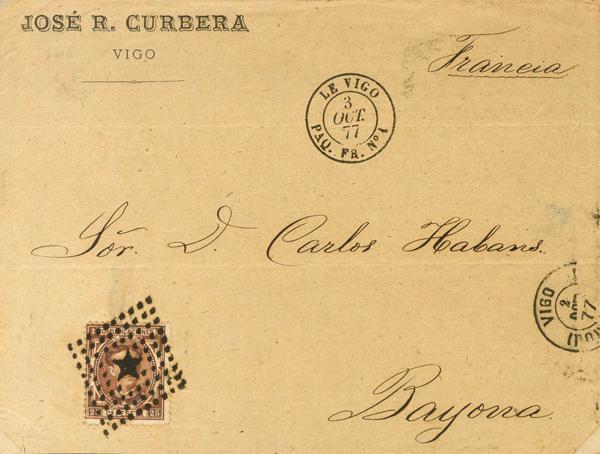 JOSÉ R. CURBERA
VIGO
Francia
LE VIGO
3
OCT.
77
PAQ. FR. Nº 1
Sõr. D. Carlos Habans.
VIGO
2
77
25 25
Bayona